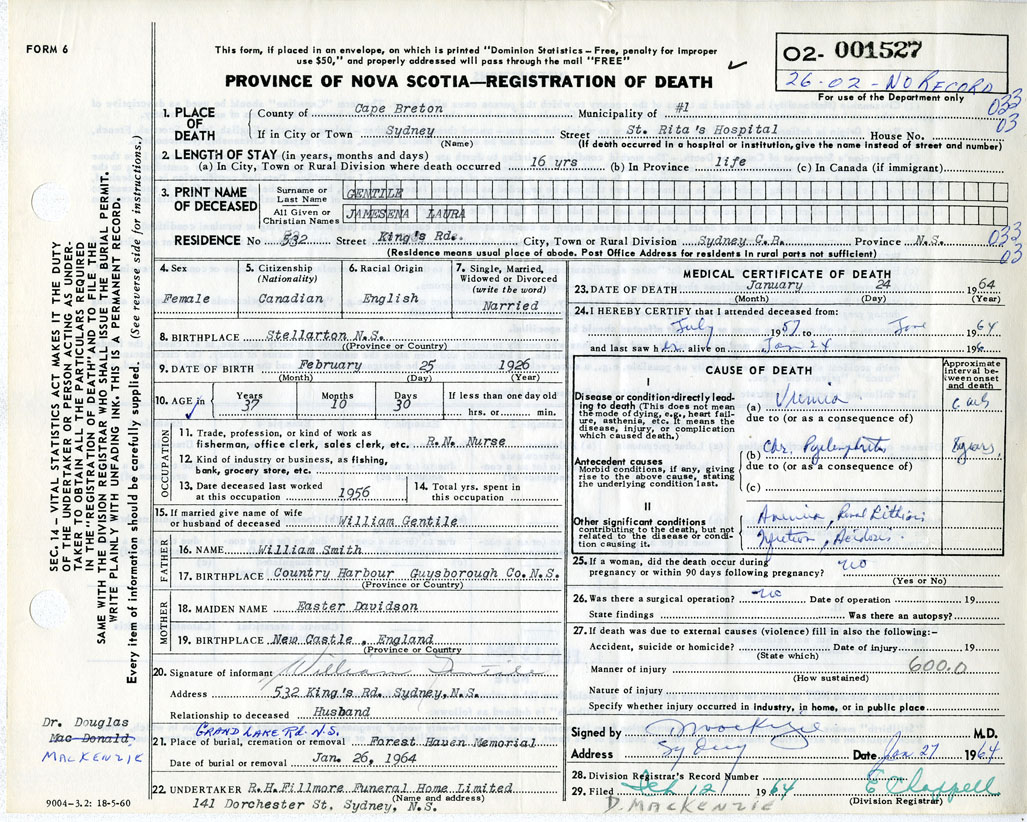 FORM 6
This form, if placed in an envelope, on which is printed "Dominion Statistics – Free, penalty for improper
use $50," and properly addressed will pass through the mail "FREE"
PROVINCE OF NOVA SCOTIA—REGISTRATION OF DEATH
O2- 001527
26-02-NO RECORD
For use of the Department only
033
03
1. PLACE OF DEATH
County of Cape Breton Municipality of #1
If in City or Town Sydney Street St. Rita's Hospital House No.
(Name) (If death occurred in a hospital or institution, give the name instead of street and number)
2. LENGTH OF STAY (in years, months and days)
(a) In City, Town or Rural Division where death occurred 16 yrs (b) In Province life (c) In Canada (if immigrant)
3. PRINT NAME OF DECEASED
Surname or Last Name GENTILE
All Given or Christian Names JAMESENA LAURA
RESIDENCE No 532 Street King's Rd. City, Town or Rural Division Sydney C.B. Province N.S.
033
03
(Residence means usual place of abode. Post Office Address for residents in rural parts not sufficient)
4. Sex
Female
5. Citizenship
(Nationality)
Canadian
6. Racial Origin
English
7. Single, Married,
Widowed or Divorced
(write the word)
Narried
8. BIRTHPLACE Stellarton N.S.
(Province or Country)
9. DATE OF BIRTH February 25 1926
(Month) (Day) (Year)
10. AGE in
Years Months Days If less than one day old
37 10 30 hrs. or min.
OCCUPATION
11. Trade, profession, or kind of work as
fisherman, office clerk, sales clerk, etc. R.N. Nurse
12. Kind of industry or business, as fishing,
bank, grocery store, etc.
13. Date deceased last worked
at this occupation 1956
14. Total yrs. spent in
this occupation
15. If married give name of wife
or husband of deceased William Gentile
FATHER
16. NAME William Smith
17. BIRTHPLACE Country Harbour Guysborough Co. N.S.
(Province or Country)
MOTHER
18. MAIDEN NAME Easter Davidson
19. BIRTHPLACE New Castle, England
(Province or Country)
20. Signature of informant William Gentile
Address 532 King's Rd. Sydney, N.S.
Relationship to deceased Husband
GRAND LAKE RD. N.S.
21. Place of burial, cremation or removal Forest Haven Memorial
Date of burial or removal Jan. 26, 1964
22. UNDERTAKER R.H. Fillmore Funeral Home Limited
(Name and address)
141 Dorchester St. Sydney, N.S.
MEDICAL CERTIFICATE OF DEATH
23. DATE OF DEATH January 24 1964
(Month) (Day) (Year)
24. I HEREBY CERTIFY that I attended deceased from:
July 1957 to 1964
and last saw her alive on Jan 24 196
CAUSE OF DEATH
Approximate
interval be-
tween onset
and death
I
Disease or condition directly lead-
ing to death (This does not mean
the mode of dying, e.g., heart fail-
ure, asthenia, etc. It means the
disease, injury, or complication
which caused death.)
(a) Uremia
due to (or as a consequence of)
Antecedent causes
Morbid conditions, if any, giving
rise to the above cause, stating
the underlying condition last.
(b) Chr. Pyelonephritis years
due to (or as a consequence of)
(c)
II
Other significant conditions
contributing to the death, but not
related to the disease or condi-
tion causing it.
Anemia, Renal
Acidosis
25. If a woman, did the death occur during
pregnancy or within 90 days following pregnancy? no
(Yes or No)
26. Was there a surgical operation? no Date of operation 19
State findings Was there an autopsy?
27. If death was due to external causes (violence) fill in also the following:–
Accident, suicide or homicide? Date of injury 19
(State which)
Manner of injury 600.0
(How sustained)
Nature of injury
Specify whether injury occurred in industry, in home, or in public place
Signed by D MacKenzie M.D.
Address Sydney Date Jan 27 1964
28. Division Registrar's Record Number
29. Filed Feb 12 1964 E Chappell
(Division Registrar)
D. MACKENZIE
SEC. 14 – VITAL STATISTICS ACT MAKES IT THE DUTY
OF THE UNDERTAKER OR PERSON ACTING AS UNDER-
TAKER TO OBTAIN ALL THE PARTICULARS REQUIRED
IN THE "REGISTRATION OF DEATH" AND TO FILE THE
SAME WITH THE DIVISION REGISTRAR WHO SHALL ISSUE THE BURIAL PERMIT.
WRITE PLAINLY WITH UNFADING INK. THIS IS A PERMANENT RECORD.
Every item of information should be carefully supplied. (See reverse side for instructions.)
Dr. Douglas
Mac Donald,
MACKENZIE
9004-3.2: 18-5-60